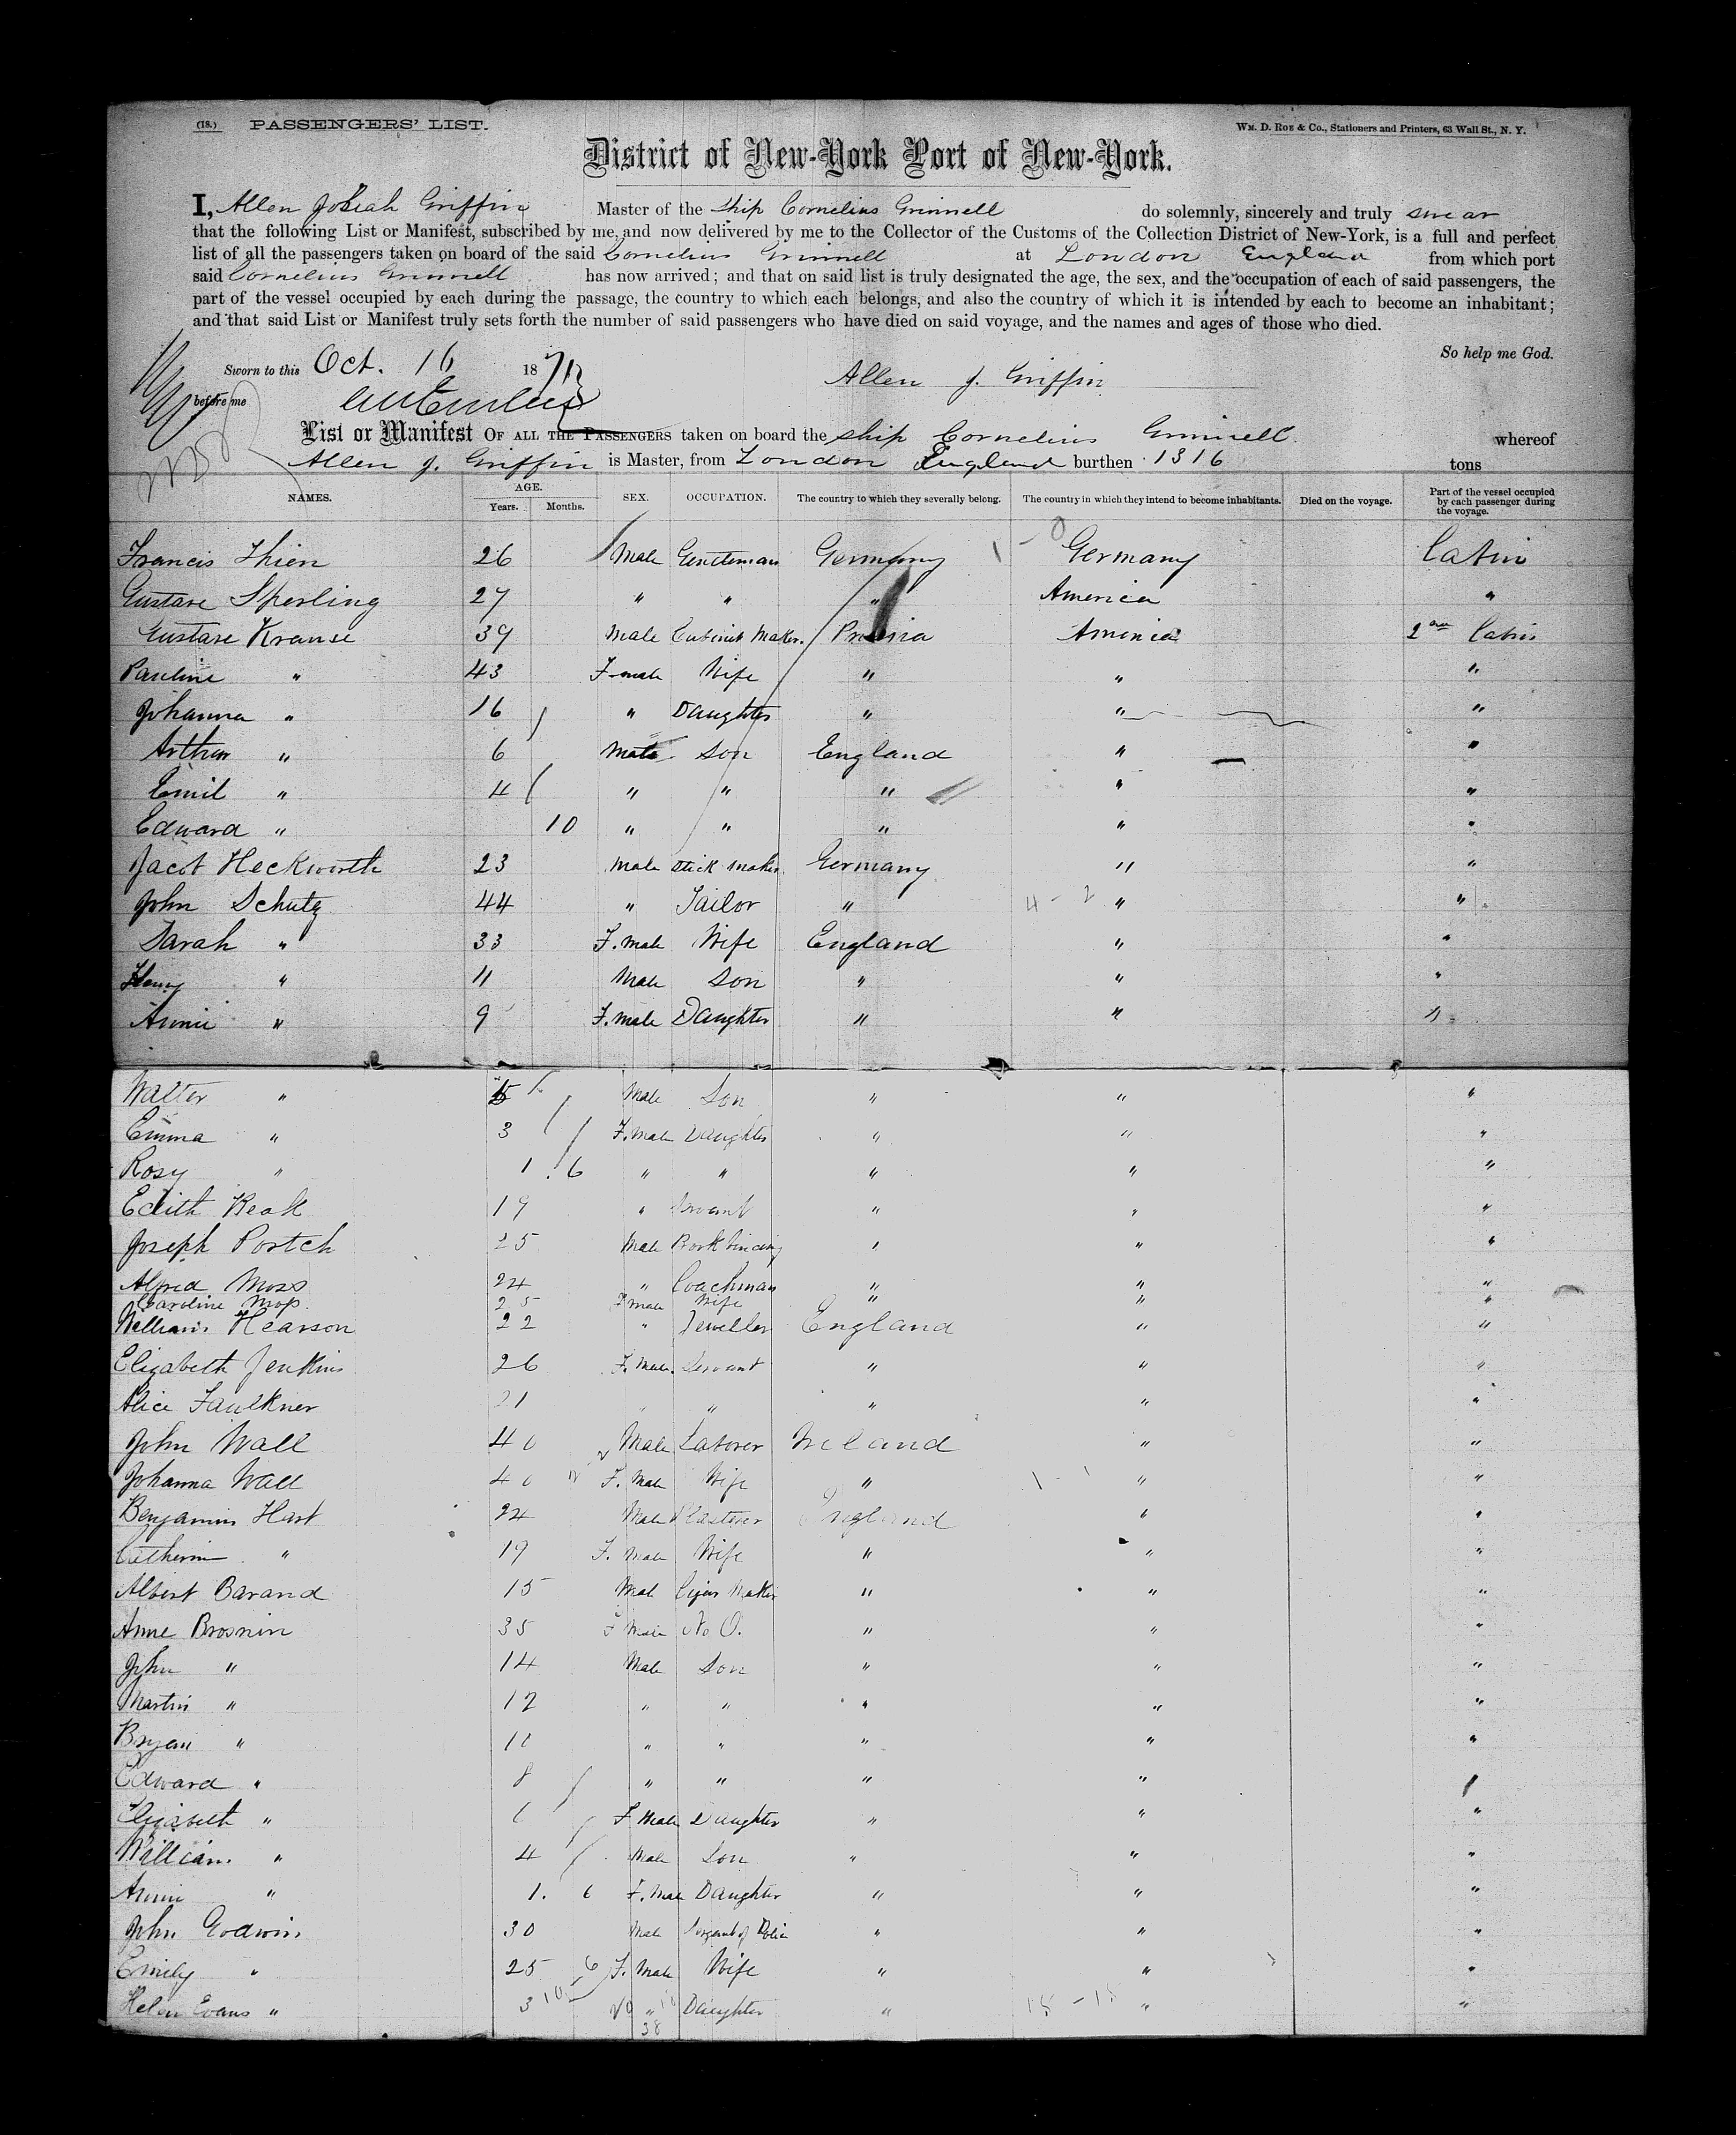 (18.) PASSENGERS' LIST. WM. D. ROE & Co., Stationers and Printers, 63 Wall St., N. Y.
District of New-York Port of New-York.
I, Allen Josiah Griffin Master of the Ship Cornelius Grinnell do solemnly, sincerely and truly swear
that the following List or Manifest, subscribed by me, and now delivered by me to the Collector of the Customs of the Collection District of New-York, is a full and perfect
list of all the passengers taken on board of the said Cornelius Grinnell at London England from which port
said Cornelius Grinnell has now arrived; and that on said list is truly designated the age, the sex, and the occupation of each of said passengers, the
part of the vessel occupied by each during the passage, the country to which each belongs, and also the country of which it is intended by each to become an inhabitant;
and that said List or Manifest truly sets forth the number of said passengers who have died on said voyage, and the names and ages of those who died.
So help me God.
Sworn to this Oct. 16 1871 Allen J. Griffin
before me
List or Manifest OF ALL THE PASSENGERS taken on board the ship Cornelius Grinnell whereof
Allen J. Griffin is Master, from London England burthen 1316 tons
NAMES. AGE. Years. Months. SEX. OCCUPATION. The country to which they severally belong. The country in which they intend to become inhabitants. Died on the voyage. Part of the vessel occupied by each passenger during the voyage.
Francis Thien 26 Male Gentleman Germany Germany Cabin
Gustave Sperling 27 " " " America "
Gustave Krause 39 Male Cabinet Maker. Prussia America 2nd Cabin
Pauline " 43 Female Wife " " "
Johanna " 16 " Daughter " " "
Arthur " 6 Male Son England " "
Emil " 4 " " " " "
Edward " 10 " " " " "
Jacob Heckworth 23 Male Stick Maker Germany " "
John Schutz 44 " Tailor " " "
Sarah " 33 F. male Wife England " "
Henry " 11 Male Son " " "
Annie " 9 F. male Daughter " " "
Walter " 5 Male Son " " "
Emma " 3 F. male Daughter " " "
Rosy " 1 . 6 " " " " "
Edith Keak 19 " Servant " " "
Joseph Portch 25 Male Bookbinding " " "
Alfred Moss 24 " Coachman " " "
Caroline Moss 25 Fmale Wife " " "
William Hearson 22 " Jeweller England " "
Elizabeth Jenkins 26 F. Male Servant " " "
Alice Faulkner 21 " " " " "
John Wall 40 Male Laborer Ireland " "
Johanna Wall 40 F. Male Wife " " "
Benjamin Hart 24 Male Plasterer England " "
Catherine " 19 F. Male Wife " " "
Albert Barand 15 Male Cigar Maker " " "
Anne Brosnin 35 F Male No O. " " "
John " 14 Male Son " " "
Martin " 12 " " " " "
Bryan " 10 " " " " "
Edward " 8 " " " " "
Elizabeth " 6 F Male Daughter " " "
William " 4 Male Son " " "
Annie " 1. 6 F. Male Daughter " " "
John Godwin 30 Male Sergeant of Police " " "
Emily " 25 F. Male Wife " " "
Helen Evans " 3 " Daughter " " "
38